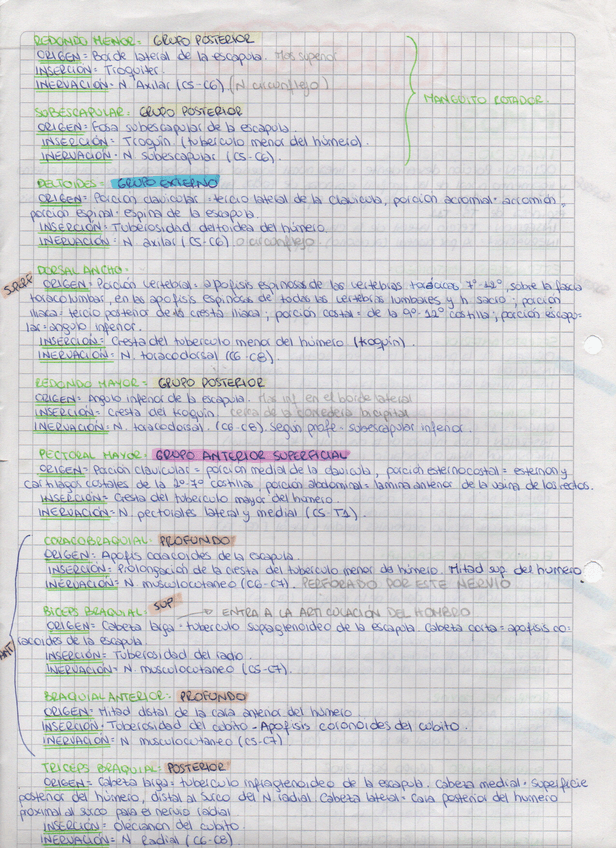 REDONDO MENOR: GRUPO POSTERIOR
ORIGEN= Borde lateral de la escapula. Mas superior
INSERCIÓN= Troquiter.
INERVACIÓN= N. Axilar (C5-C6) (N circunflejo)
MANGUITO ROTADOR
SUBESCAPULAR: GRUPO POSTERIOR
ORIGEN= Fosa subescapular de la escapula.
INSERCIÓN= Troquin (tuberculo menor del húmero).
INERVACIÓN= N. subescapular (C5-C6).
DELTOIDES= GRUPO EXTERNO
ORIGEN= Porción clavicular = tercio lateral de la clavicula, porción acromial= acromion,
porción espinal= espina de la escapula.
INSERCIÓN= Tuberosidad deltoidea del húmero
INERVACIÓN= N. axilar (C5-C6) o circunflejo
DORSAL ANCHO:
SUPERF
ORIGEN= Porción vertebral= apofisis espinosas de las vertebras toracicas 7º-12º, sobre la fascia
toracolumbar, en las apofisis espinosas de todas las vertebras lumbares y h. sacro; porción
iliaca= tercio posterior de la cresta iliaca; porción costal= de la 9º-12º costilla; porción escapu-
lar= angulo inferior.
INSERCIÓN= Cresta del tuberculo menor del húmero (troquin).
INERVACIÓN= N. toracodorsal (C6-C8).
REDONDO MAYOR= GRUPO POSTERIOR
ORIGEN= angulo inferior de la escapula. Mas inf. en el borde lateral
INSERCIÓN= Cresta del troquin. cerca de la corredera bicipital
INERVACIÓN= N. toracodorsal. (C6-C8). Según profe= subescapular inferior.
PECTORAL MAYOR: GRUPO ANTERIOR SUPERFICIAL
ORIGEN= Porción clavicular = porción medial de la clavicula, porción esternocostal= esternon y
cartilagos costales de la 2º-7º costillas, porción abdominal= lamina anterior de la vaina de los rectos.
INSERCIÓN= Cresta del tuberculo mayor del húmero.
INERVACIÓN= N. pectorales lateral y medial (C5-T1).
CORACOBRAQUIAL: PROFUNDO
ORIGEN= Apofisis coracoides de la escapula.
INSERCIÓN= Prolongación de la cresta del tuberculo menor de húmero. Mitad sup. del humero
INERVACIÓN= N musculocutaneo (C6-C7). PERFORADO POR ESTE NERVIO
BICEPS BRAQUIAL: SUP → ENTRA A LA ARTICULACIÓN DEL HOMBRO
ORIGEN= Cabeza larga= tuberculo supraglenoideo de la escapula. Cabeza corta= apofisis co-
racoides de la escapula
INSERCIÓN= Tuberosidad del radio.
INERVACIÓN= N. musculocutaneo (C5-C7).
ANT
BRAQUIAL ANTERIOR: PROFUNDO
ORIGEN= Mitad distal de la cara anterior del húmero
INSERCIÓN= Tuberosidad del cubito. Apofisis coronoides del cubito.
INERVACIÓN= N musculocutaneo (C5-C7)
TRICEPS BRAQUIAL: POSTERIOR
ORIGEN= Cabeza larga= tuberculo infraglenoideo de la escapula. Cabeza medial= superficie
posterior del húmero, distal al surco del N. radial Cabeza lateral= Cara posterior del humero
proximal al surco para el nervio radial
INSERCIÓN= olecranon del cubito.
INERVACIÓN= N Radial (C6-C8)